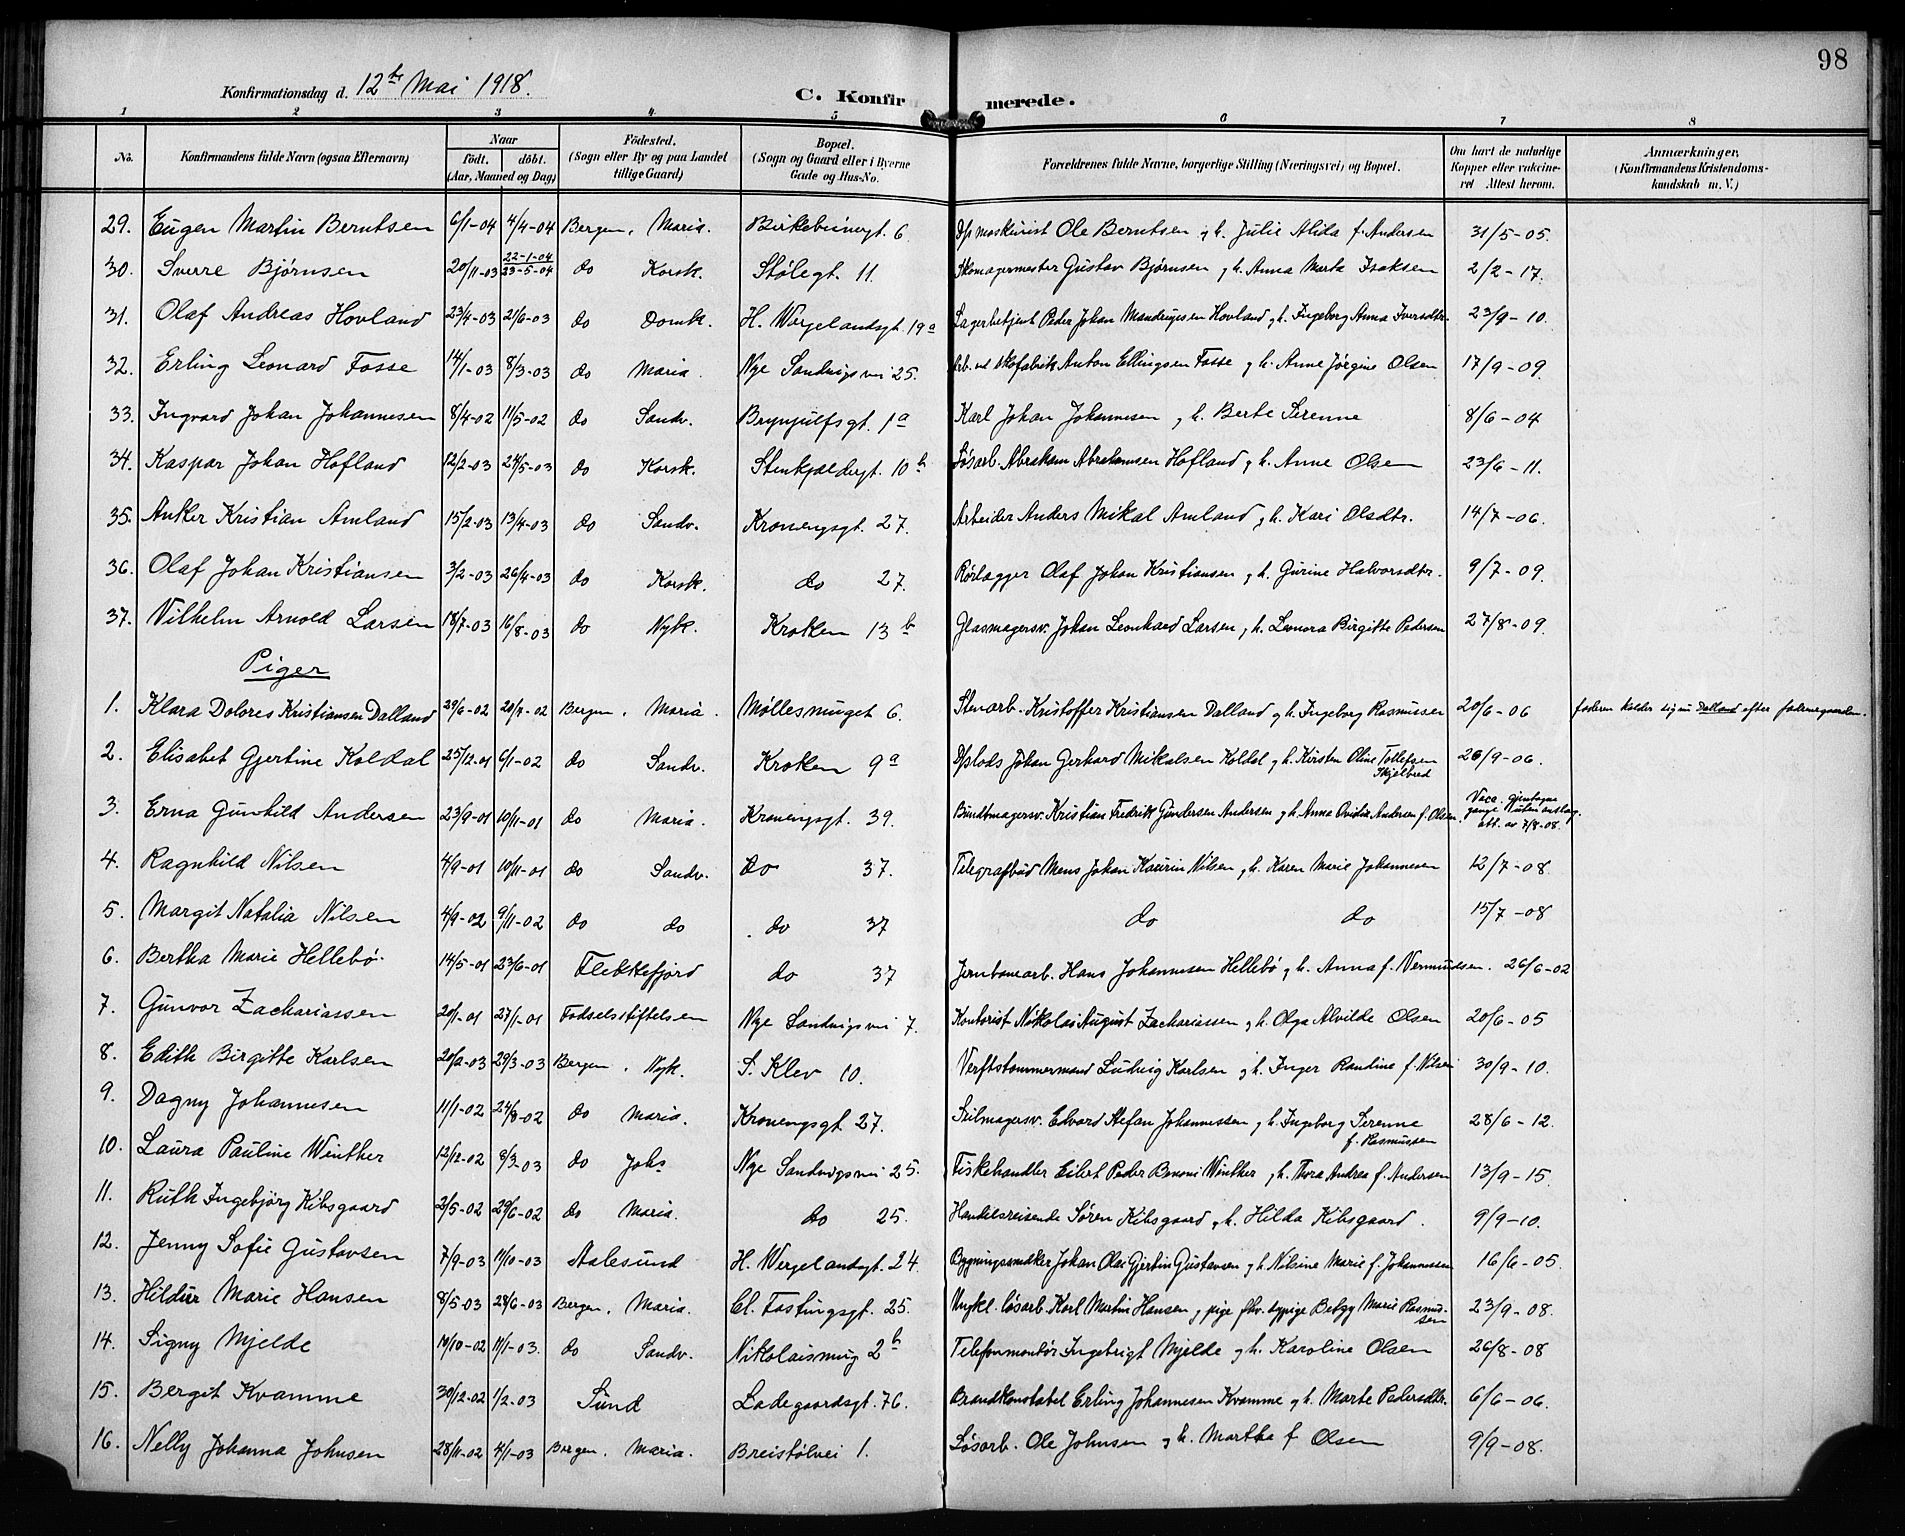 98
Konfirmationsdag d. 12te Mai 1918.
C. Konfirmerede.
1 2 3 4 5 6 7 8
No. Konfirmandens fulde Navn (ogsaa Efternavn) Naar födt. döbt. (Aar, Maaned og Dag) Födested. (Sogn eller By og paa Landet tillige Gaard) Bopæl. (Sogn og Gaard eller i Byerne Gade og Hus-No. Forældrenes fulde Navne, borgerlige Stilling (Næringsvei) og Bopæl. Om havt de naturlige Kopper eller vaccineret. Attest herom. Anmærkninger, (Konfirmandens Kristendomskundskab m. V.)
29. Eugen Martin Berntsen 6/1-04 4/4-04 Bergen, Maria. Birkebeinergt. 6. Dpmaskinist Ole Berntsen og h. Julie Alida f. Andersen 31/5-05.
30. Sverre Bjørnsen 20/11-03 22-1-04 23-5-04 do Korsk. Stølegt. 11. Skomagermester Gustav Bjørnsen og h. Anna Marta Isaksen 2/2-17.
31. Olaf Andreas Hovland 23/4-03 21/6-03 do Domk. H. Wergelandsgt. 19a Lagerbetjent Peder Johan Mandrupsen Hovland og h. Ingeborg Anna Iversdtr. 23/9-10.
32. Erling Leonard Fosse 14/1-03 8/3-03 do Maria. Nye Sandvigsvei 25. Arb. ved skofabrik Anton Ellingsen Fosse og h. Anne Jørgine Olsen 17/9-09.
33. Ingvard Johan Johannesen 8/4-02 11/5-02 do Sandv. Brynjulfsgt. 1a Karl Johan Johannesen og h. Berte Serenne 8/6-04
34. Kaspar Johan Hofland 12/2-03 24/5-03 do Korsk. Stenkjeldergt. 10b Løsarb. Abraham Abrahamsen Hofland og h. Anne Olsen 23/6-11.
35. Anker Kristian Amland 15/2-03 13/4-03 do Sandv. Kronengsgt. 27. Arbeider Anders Mikal Amland og h. Kari Olsdtr. 14/7-06.
36. Olaf Johan Kristiansen 3/2-03 26/4-03 do Korsk. do 27. Rørlægger Olaf Johan Kristiansen og h. Gurine Halvorsdtr. 9/7-09.
37. Vilhelm Arnold Larsen 18/7-03 16/8-03 do Nyk. Kroken 13b Glasmagersv. Johan Leonhard Larsen og h. Leonora Birgitte Pedersen 27/8-09.
Piger
1. Klara Dolores Kristiansen Dalland 29/6-02 20/7-02 Bergen, Maria. Møllesmuget 6. Stenarb. Kristoffer Kristiansen Dalland og h. Ingeborg Rasmussen 20/6-06 faderen kalder sig nu Dalland efter fædrenegaarden.
2. Elisabet Gjertine Koldal 25/12-01 6/1-02 do Sandv. Kroken 9a Dplods Johan Gerhard Mikalsen Koldal og h. Kirsten Oline Tollefsen Skjelbred 26/9-06.
3. Erna Gunhild Andersen 23/9-01 10/11-01 do Maria. Kronengsgt. 39. Buntmagersv. Kristian Fredrik Gundersen Andersen og h. Anna Andersen f. Olsen Vacc. gjentagne gange uten anslag att. av 7/8-08.
4. Ragnhild Nilsen 4/9-01 10/11-01 do Sandv. do 37. Telegrafbud Mons Johan Kaurin Nilsen og h. Karen Marie Johannesen 12/7-08.
5. Margit Natalia Nilsen 4/9-02 9/11-02 do do do 37 do do 15/7-08
6. Bertha Marie Hellebö 14/5-01 23/6-01 Flekkefjord do 37 Jernbanearb. Hans Johannesen Hellebö og h. Anna f. Vermundsen. 26/6-02
7. Gunvor Zachariassen 20/1-01 27/1-01 Fødselsstiftelsen Nye Sandvigsvei 7. Kontorist Nikolai August Zachariassen og h. Olga Alvilde Olsen 20/6-05
8. Edith Birgitte Karlsen 20/2-03 29/3-03 Bergen, Nyk. S. Klev 10. Verftstømmermand Ludvig Karlsen og h. Inger Randine f. Nilsen 30/9-10.
9. Dagny Johannesen 11/1-02 24/8-02 do Maria. Kronengsgt 27. Seilmagersv. Edvard Stefan Johannessen og h. Ingeborg Serenne f. Rasmussen 28/6-12.
10. Laura Pauline Winther 12/12-02 8/3-03 do Johs Nye Sandvigsvei 25. Fiskehandler Eilert Peder Benoni Winther og h. Thora Andrea f. Andersen 13/9-15.
11. Ruth Ingebjörg Kibsgaard 2/5-02 29/6-02 do Maria. do 25. Handelsreisende Søren Kibsgaard og h. Hilda Kibsgaard. 9/9-10.
12. Jenny Sofie Gustavsen 7/9-03 11/10-03 Aalesund H. Wergelandsgt. 24. Bygningssnedker Johan Olai Gjertin Gustavsen og h. Nilsine Marie f. Johannessen 16/6-05.
13. Hildur Marie Hansen 8/5-03 28/6-03 Bergen, Maria. Cl. Fastingsgt. 25. Ungkl. løsarb. Karl Martin Hansen og pige fhv. sypige Betzy Marie Rasmussen 23/9-08.
14. Signy Mjelde 10/10-02 11/1-03. do Sandv. Nikolaismug 2b Telefonmontör Ingebrigt Mjelde og h. Karoline Olsen 26/8-08
15. Bergit Kvamme 30/12-02 1/2-03 Sund Ladegaardsgt. 76. Brandkonstabel Erling Johannesen Kvamme og h. Marte Pedersdtr. 6/6-06.
16. Nelly Johanna Johnsen 28/11-02 4/1-03 Bergen, Maria. Breistølvei 1. Løsarb. Ole Johnsen og h. Martha f Olsen 9/9-08.